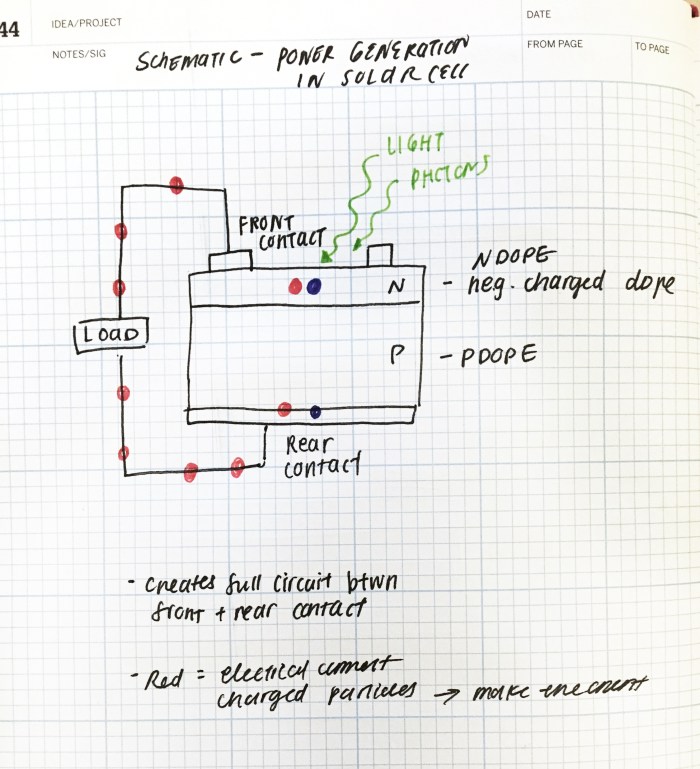 44
IDEA/PROJECT
DATE
NOTES/SIG
FROM PAGE
TO PAGE
SCHEMATIC - POWER GENERATION
IN SOLAR CELL
LIGHT
PHOTONS
FRONT
CONTACT
N DOPE
N - neg. charged dope
LOAD
P - P DOPE
Rear
contact
- creates full circuit btwn
front + rear contact
- Red = electrical current
charged particles → make